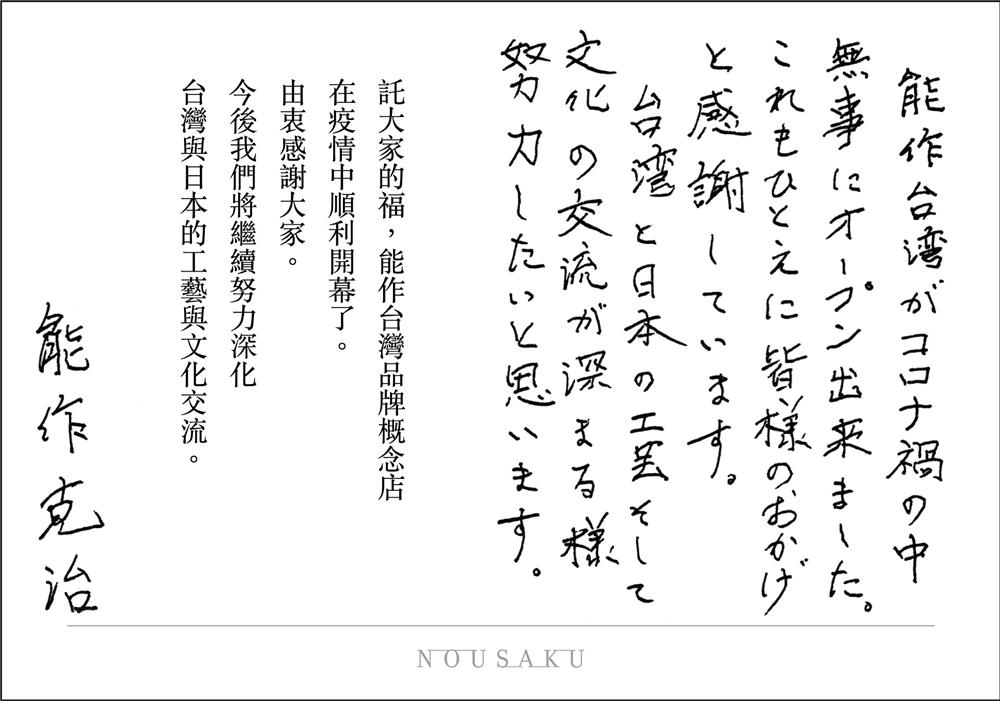 能作台湾がコロナ禍の中
無事にオープン出来ました。
これもひとえに皆様のおかげ
と感謝しています。
台湾と日本の工芸そして
文化の交流が深まる様
努力したいと思います。
託大家的福，能作台灣品牌概念店
在疫情中順利開幕了。
由衷感謝大家。
今後我們將繼續努力深化
台灣與日本的工藝與文化交流。
能作克治
NOUSAKU